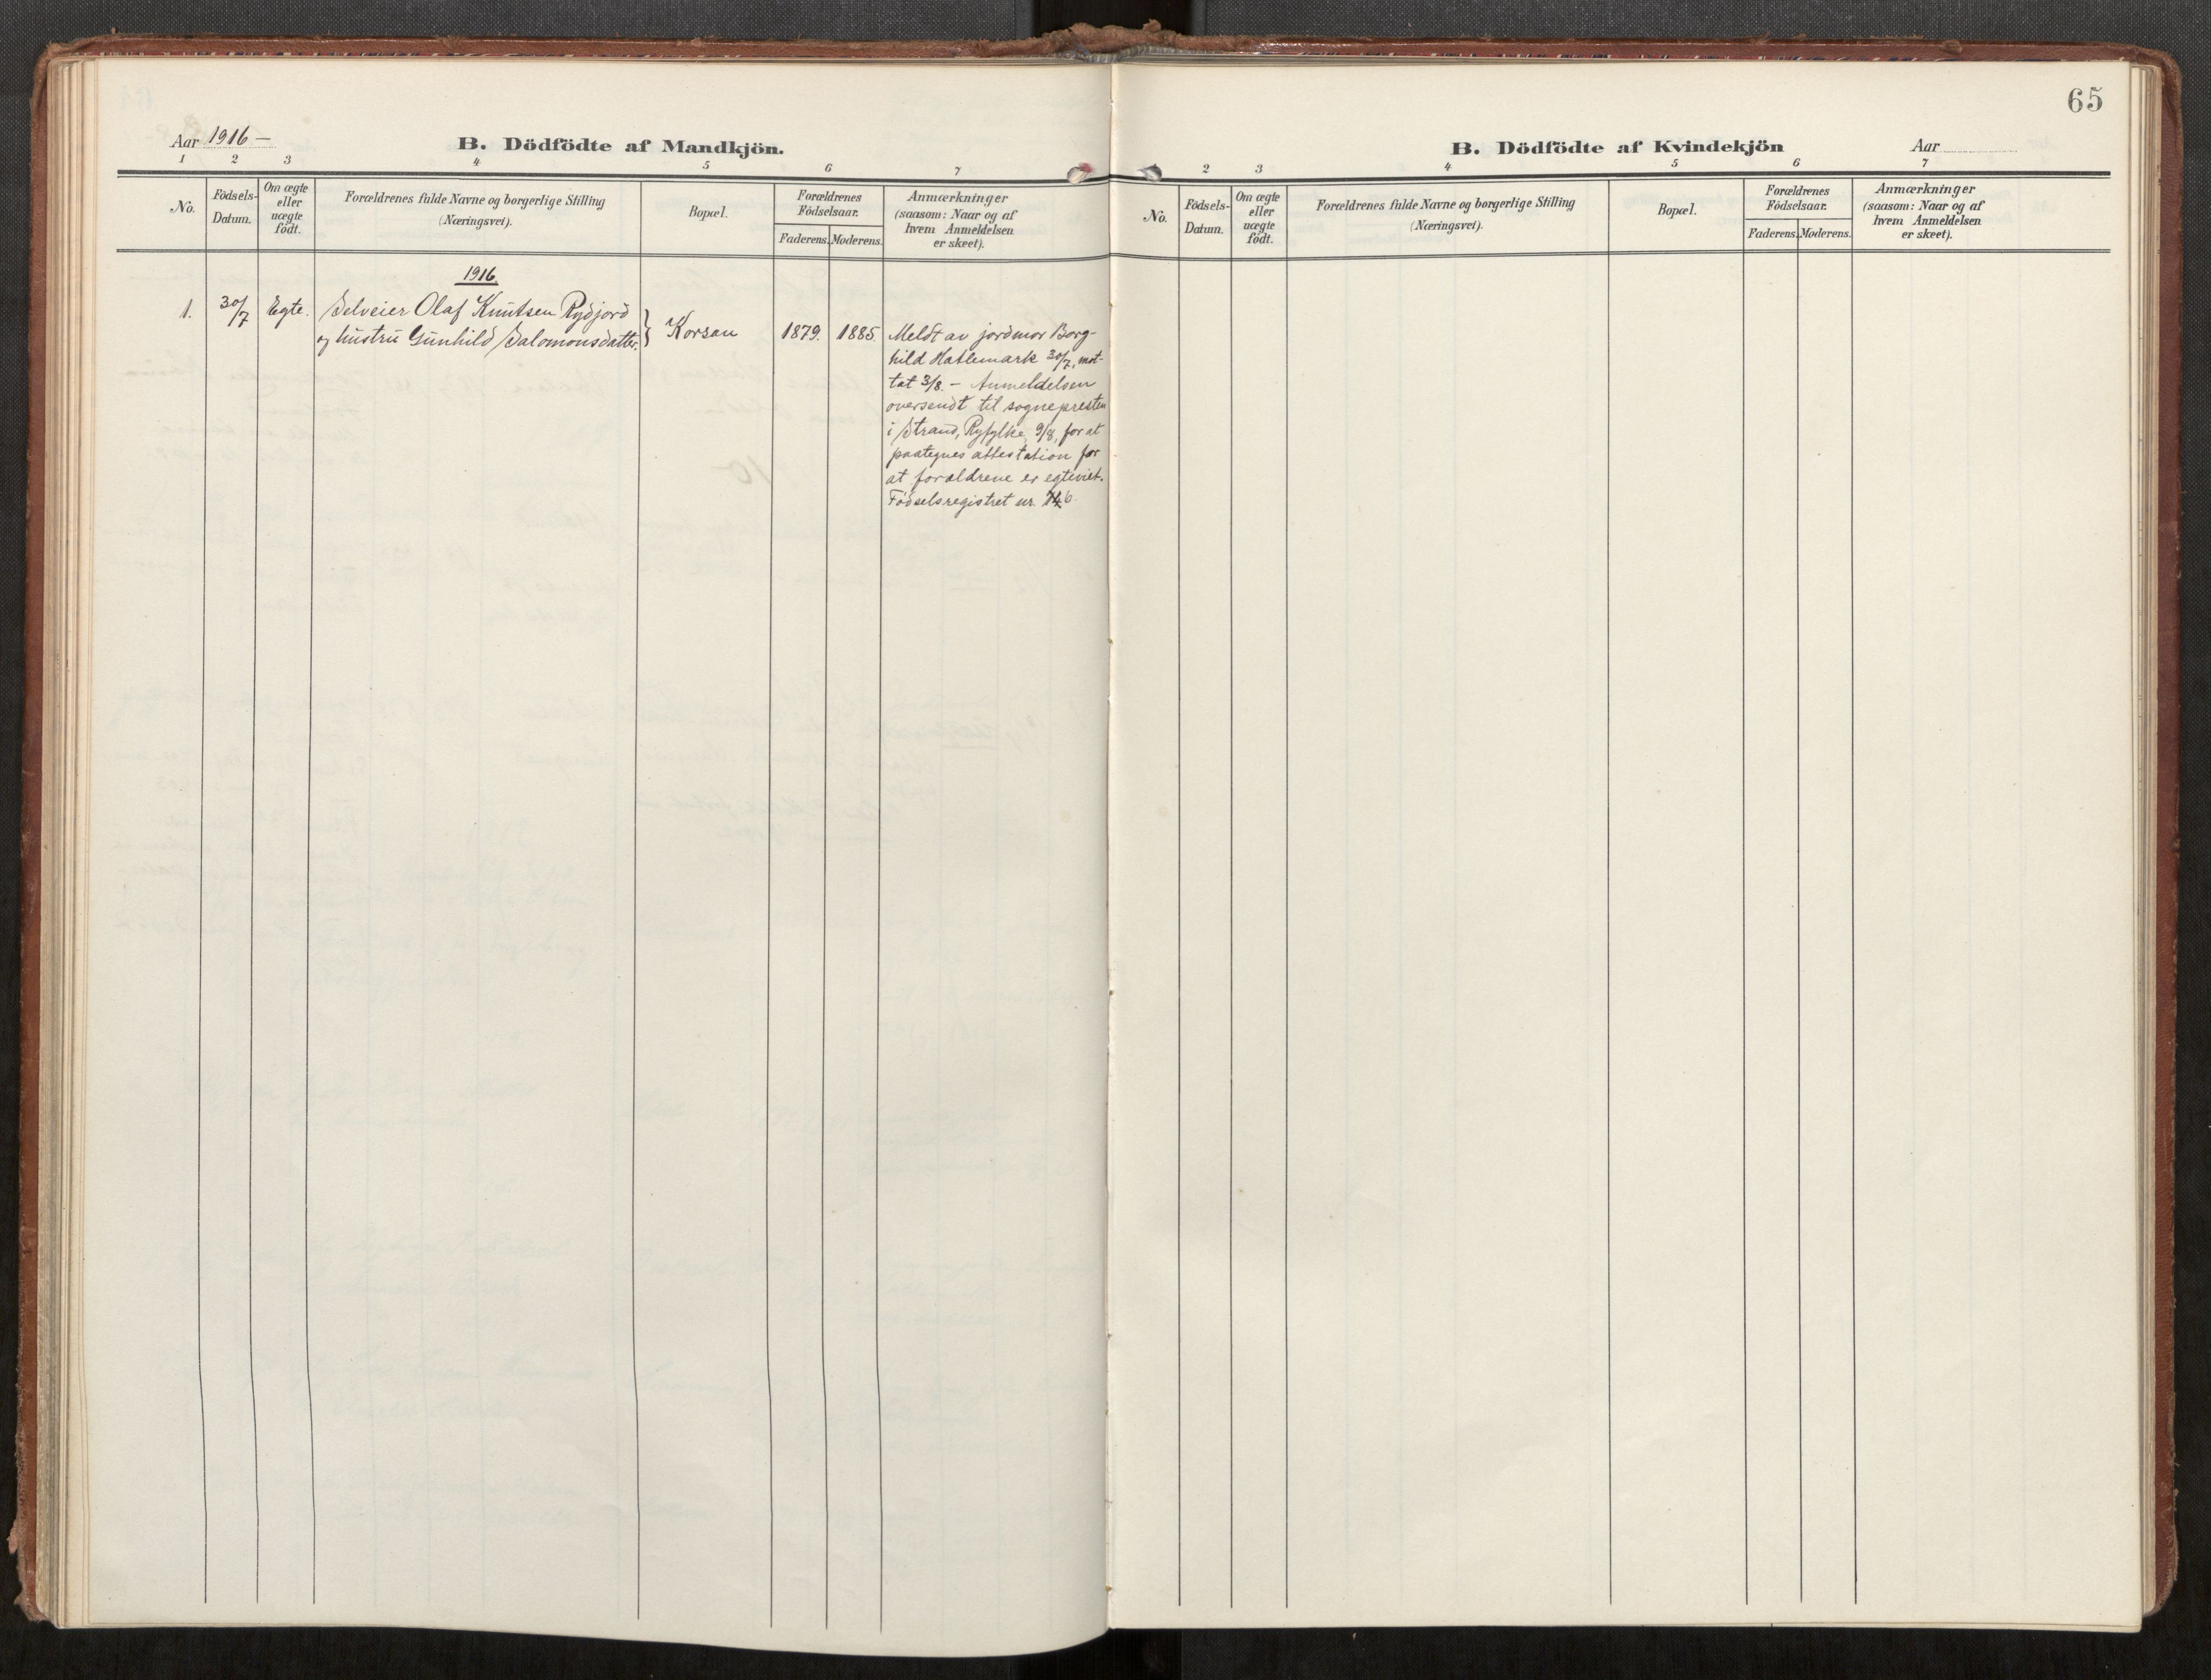 Aar 1916 —
B. Dödfödte af Mandkjön.
1 2 3 4 5 6 7
No.
Födsels-
Datum.
Om ægte
eller
uægte
födt.
Forældrenes fulde Navne og borgerlige Stilling
(Næringsvei).
Bopæl.
Forældrenes
Födselsaar.
Faderens. Moderens.
Anmærkninger
(saasom: Naar og af
hvem Anmeldelsen
er skeet).
1916
1. 30/7 Egte. Selveier Olaf Knutsen Rydjord
og hustru Gunhild Salomonsdatter.
Korsan 1879. 1885.
Meldt av jordmor Borg-
hild Hatlemark 30/7, mot-
tat 3/8. — Anmeldelsen
oversendt til sognepresten
i Strand, Ryfylke, 9/8, for at
paategnes attestation for
at forældrene er egteviet.
Fødselsregistret nr.
65
B. Dödfödte af Kvindekjön
Aar
2 3 4 5 6 7
No.
Födsels-
Datum.
Om ægte
eller
uægte
födt.
Forældrenes fulde Navne og borgerlige Stilling
(Næringsvei).
Bopæl.
Forældrenes
Födselsaar.
Faderens. Moderens.
Anmærkninger
(saasom: Naar og af
hvem Anmeldelsen
er skeet).